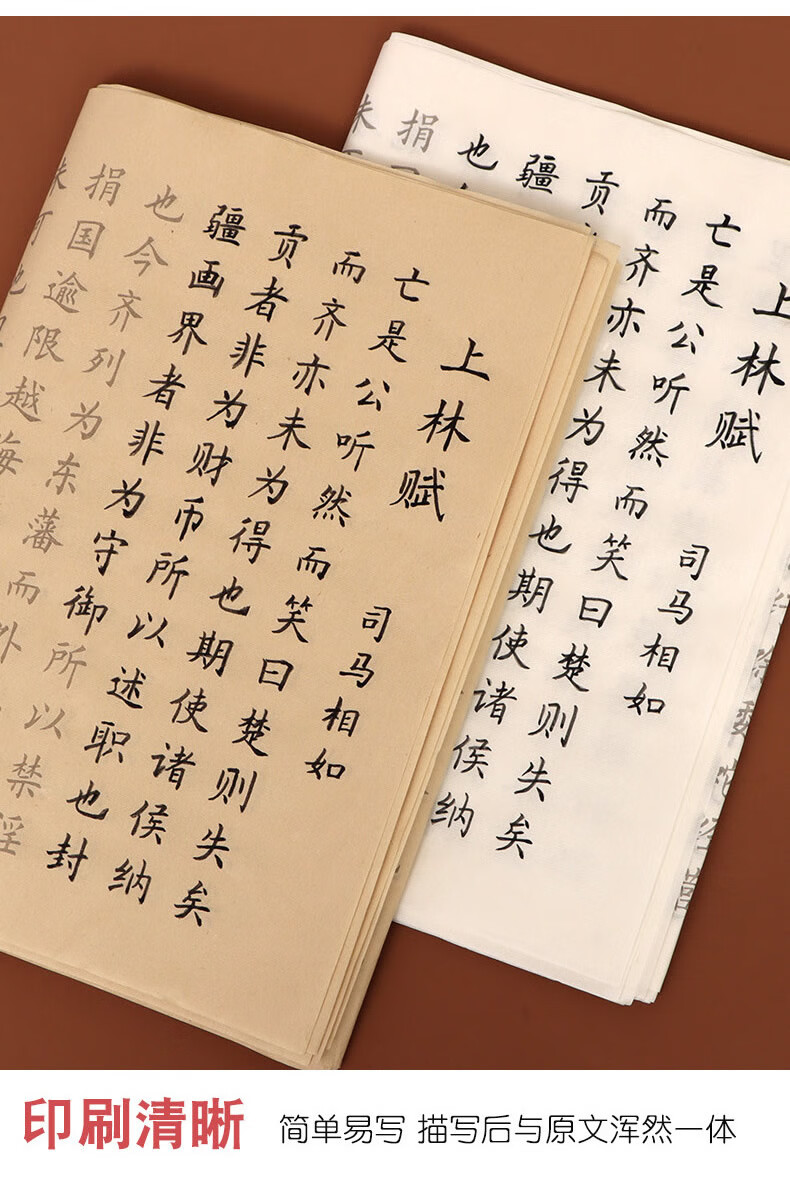 上林赋
司马相如
亡是公听然而笑曰楚则失矣
而齐亦未为得也期使诸侯纳
贡者非为财币所以述职也封
疆画界者非为守御所以禁淫
也今齐列为东藩而外
捐国逾限越海
上林赋
司马相如
亡是公听然而笑曰楚则失矣
而齐亦未为得也期使诸侯纳
贡
疆
也
捐
印刷清晰 简单易写 描写后与原文浑然一体